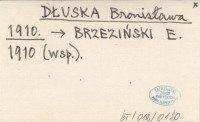 DŁUSKA Bronisława
1910. → BRZEZIŃSKI E.
1910 (wsp.).